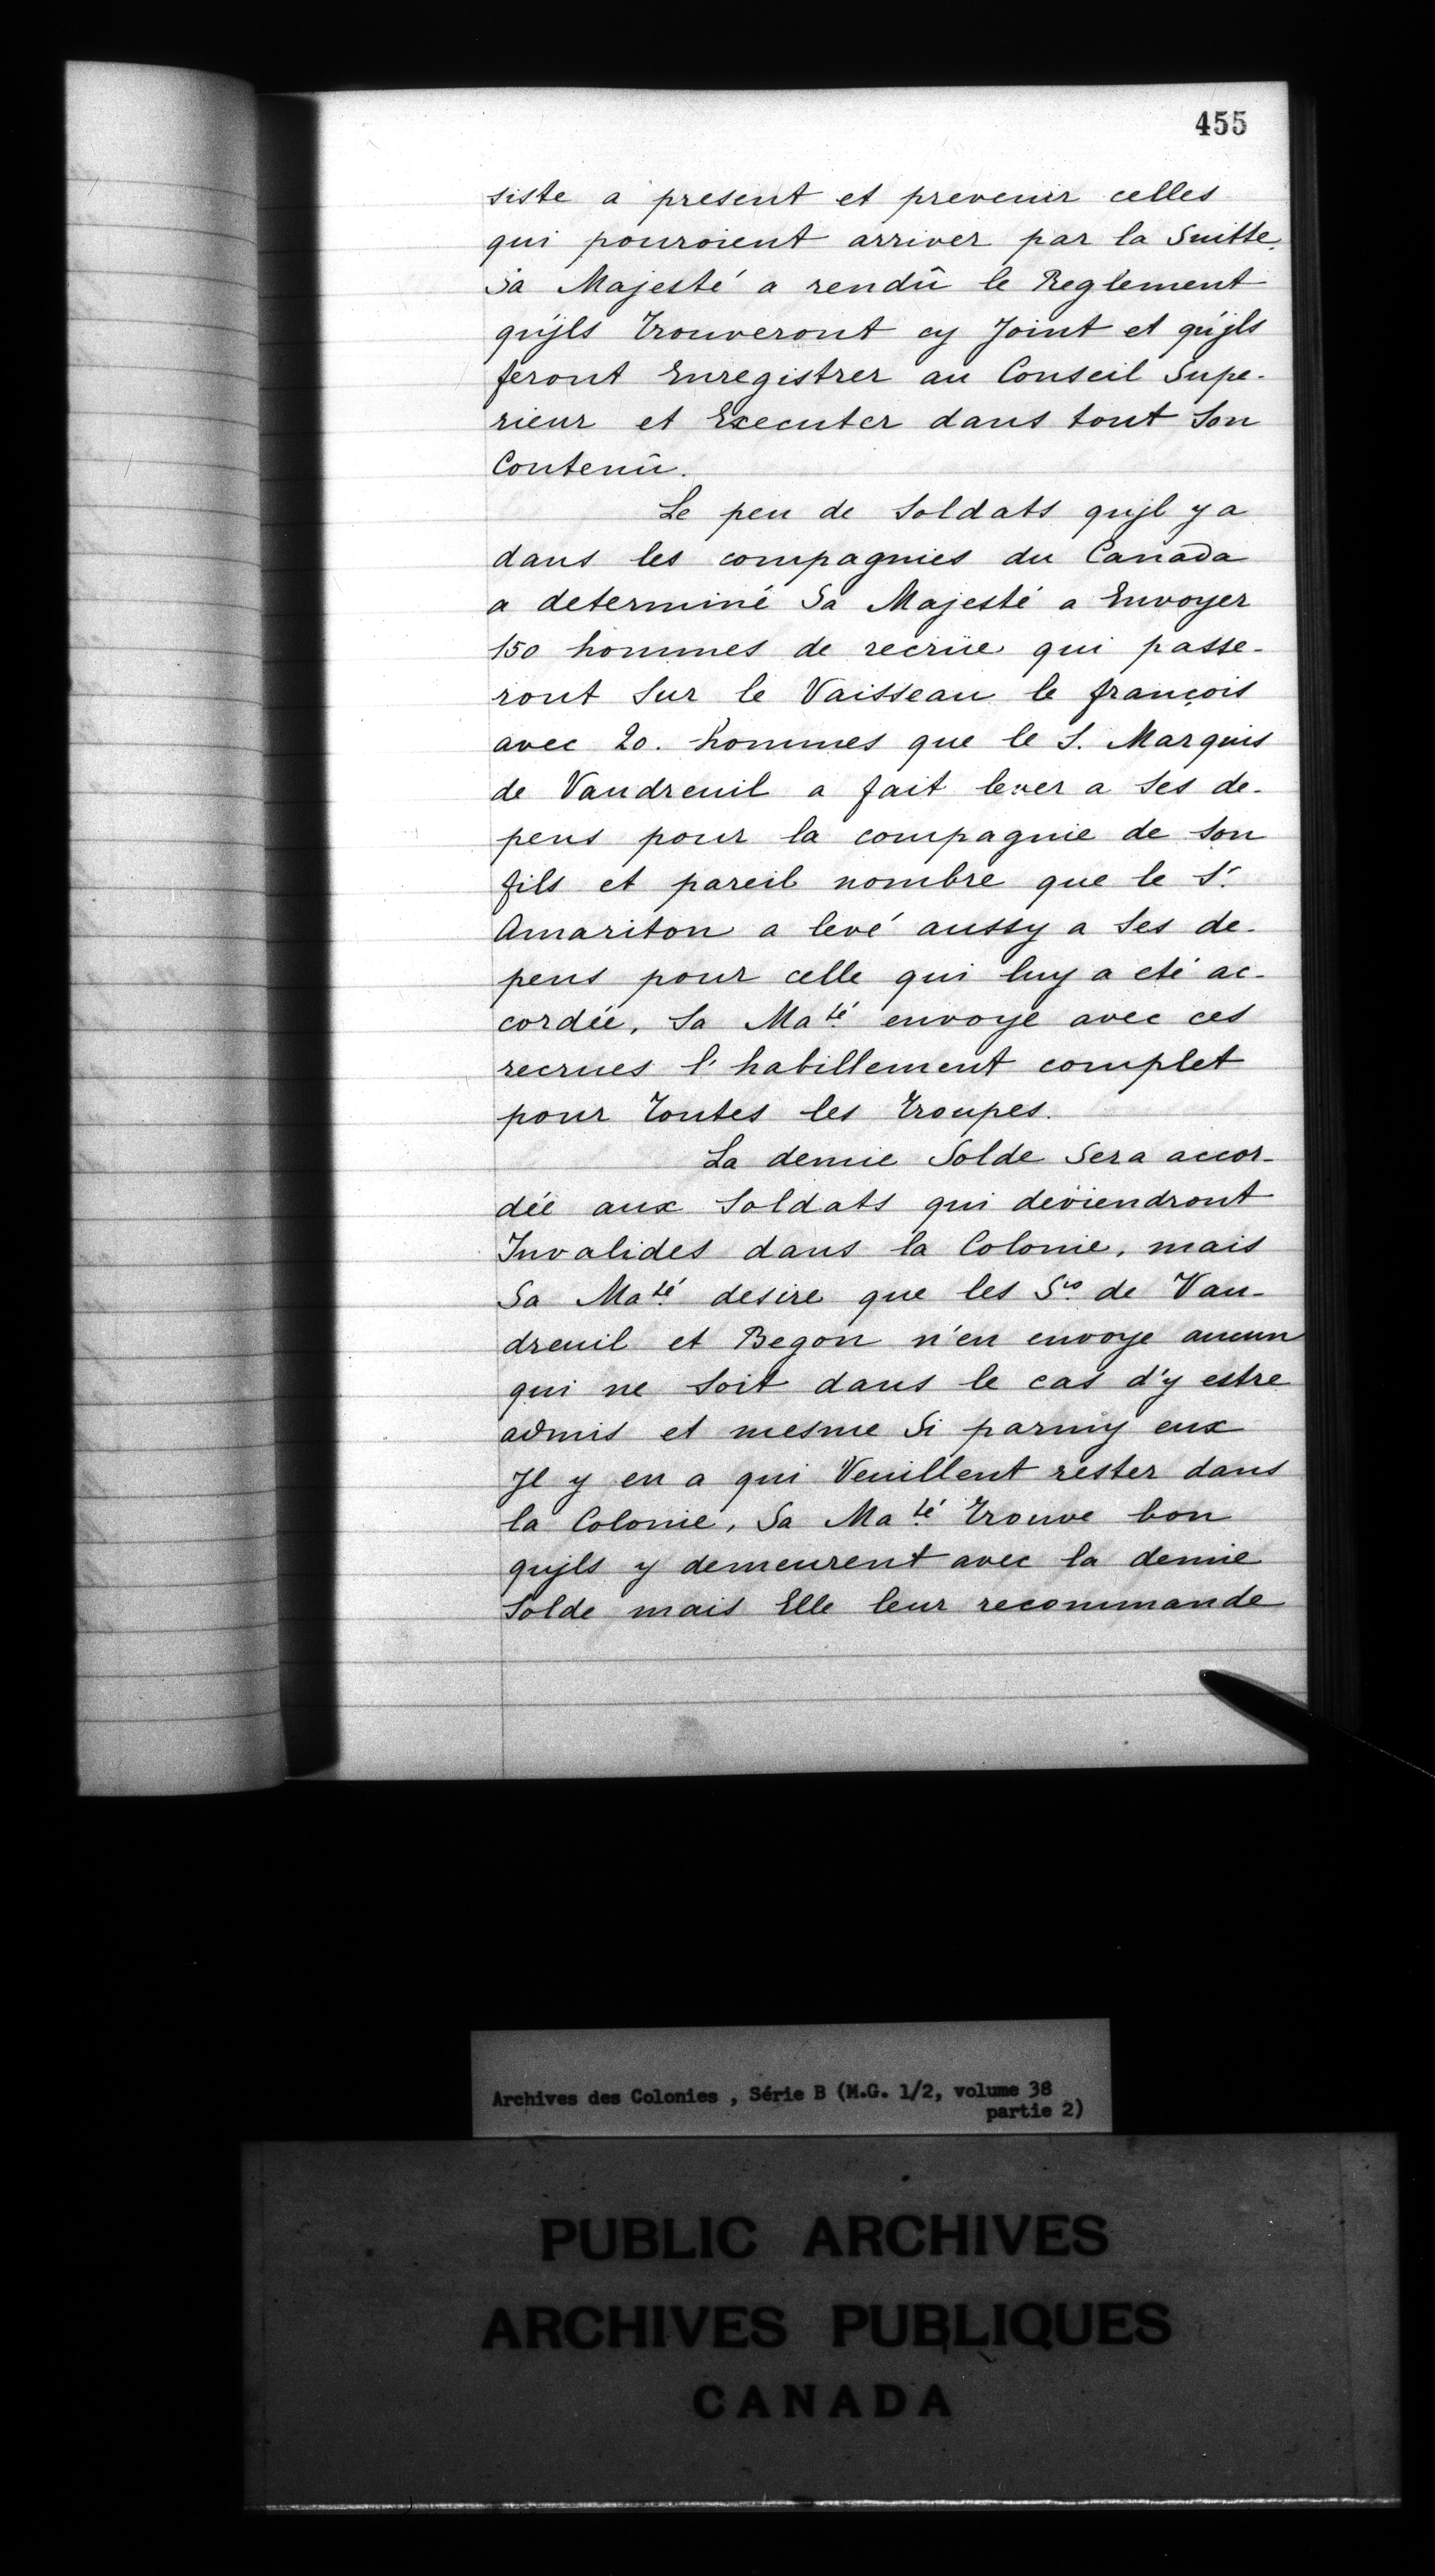 455
siste a present et prevenir celles
qui pouroient arriver par la Suitte.
Sa Majesté a rendû le Reglement
qu'jls trouveront cy Joint et qu'jls
feront Enregistrer au Conseil Supe-
rieur et Executer dans tout Son
Contenû.
Le peu de Soldats qujl y a
dans les compagnies du Canada
a determiné Sa Majesté a Envoyer
150 hommes de recrüe qui passe-
ront Sur le Vaisseau le françois
avec 20. hommes que le S. Marquis
de Vaudreuil a fait lever a Ses de-
pens pour la compagnie de Son
fils et pareil nombre que le Sr.
Amariton a levé aussy a Ses de-
pens pour celle qui luy a eté ac-
cordée, Sa Maté envoye avec ces
recrues l'habillement complet
pour Toutes les Troupes.
La demie Solde Sera accor-
dée aux Soldats qui deviendront
Invalides dans la Colonie, mais
Sa Maté desire que les Srs de Vau-
dreuil et Begon n'en envoye aucun
qui ne Soit dans le cas d'y estre
admis et mesme Si parmy eux
Jl y en a qui Veuillent rester dans
la Colonie, Sa Maté Trouve bon
qujls y demeurent avec la demie
Solde mais Elle leur recommande
Archives des Colonies , Série B (M.G. 1/2, volume 38
partie 2)
PUBLIC ARCHIVES
ARCHIVES PUBLIQUES
CANADA